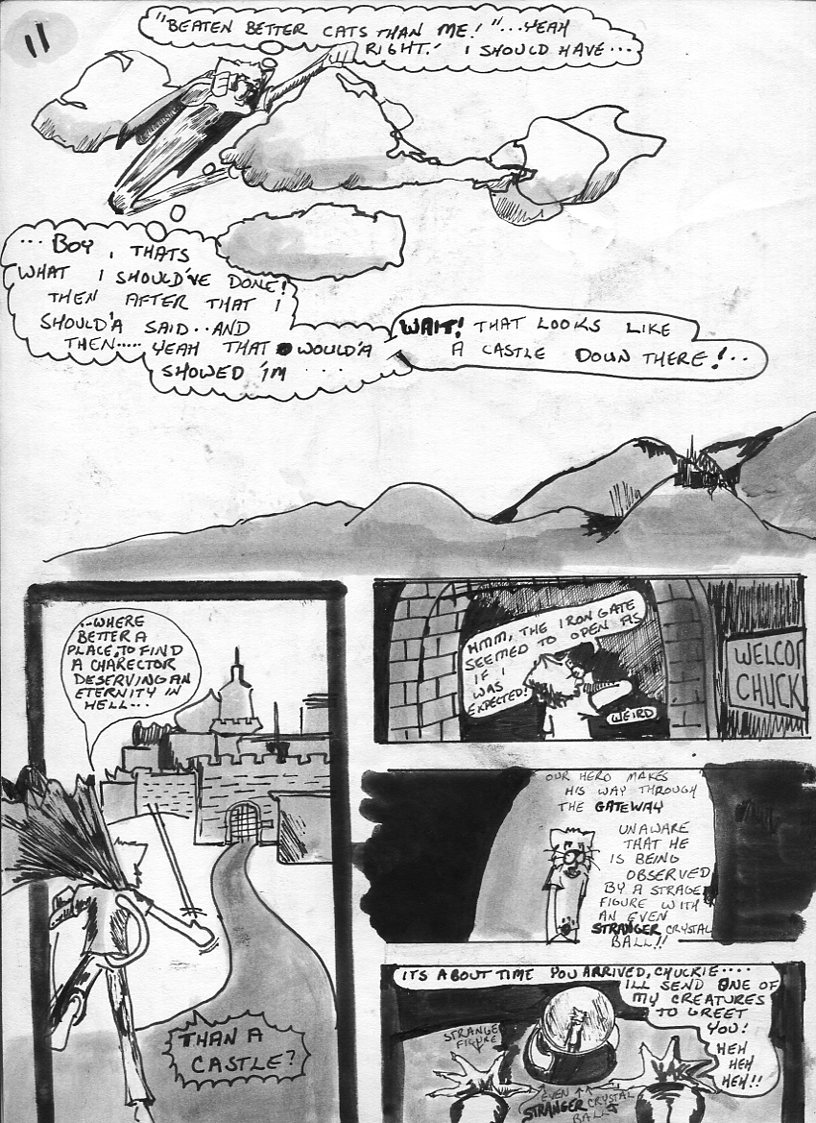 11
"BEATEN BETTER CATS THAN ME!"...YEAH
RIGHT! I SHOULD HAVE...
...BOY, THATS
WHAT I SHOULD'VE DONE!
THEN AFTER THAT I
SHOULD'A SAID..AND
THEN..... YEAH THAT WOULD'A
SHOWED 'IM ...
WAIT! THAT LOOKS LIKE
A CASTLE DOWN THERE!..
..WHERE
BETTER A
PLACE, TO FIND
A CHARECTOR
DESERVING AN
ETERNITY IN
HELL...
THAN A
CASTLE?
HMM, THE IRON GATE
SEEMED TO OPEN AS
IF I
WAS
EXPECTED!
WEIRD
WELCOM
CHUCK
OUR HERO MAKES
HIS WAY THROUGH
THE GATEWAY
UNAWARE
THAT HE
IS BEING
OBSERVED
BY A STRAGE
FIGURE WITH
AN EVEN
STRANGER CRYSTAL
BALL!!
ITS ABOUT TIME YOU ARRIVED, CHUCKIE....
I'LL SEND ONE OF
MY CREATURES
TO GREET
YOU!
HEH
HEH
HEH!!
STRANGE
FIGURE
EVEN
STRANGER CRYSTAL
BALL